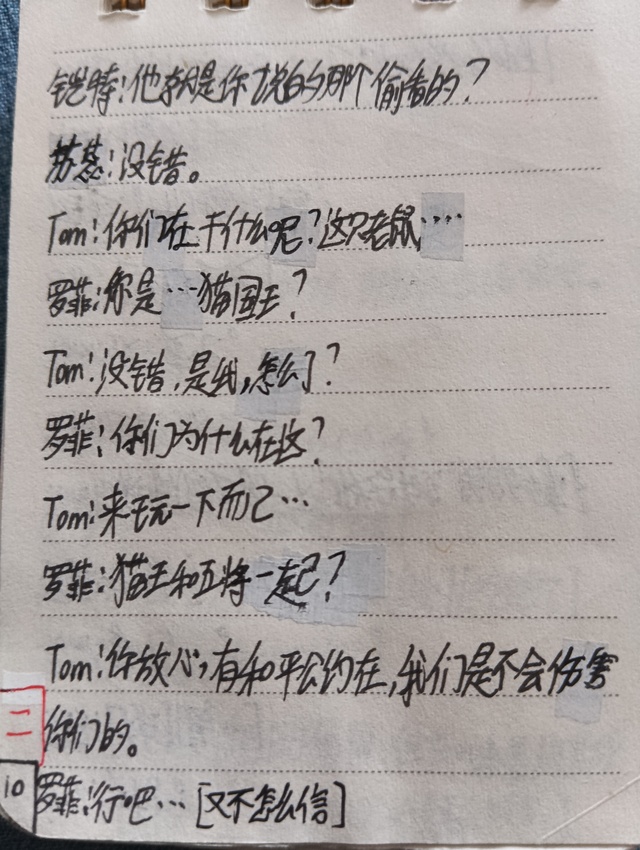 铠特：他就是你说的那个偷看的？
苏蕊：没错。
Tom：你们在干什么呢？这只老鼠····
罗菲：你是···猫国王？
Tom：没错，是我，怎么了？
罗菲：你们为什么在这？
Tom：来玩一下而己···
罗菲：猫王和五将一起？
Tom：你放心，有和平公约在，我们是不会伤害
二 你们的。
10 罗菲：行吧···［又不怎么信］